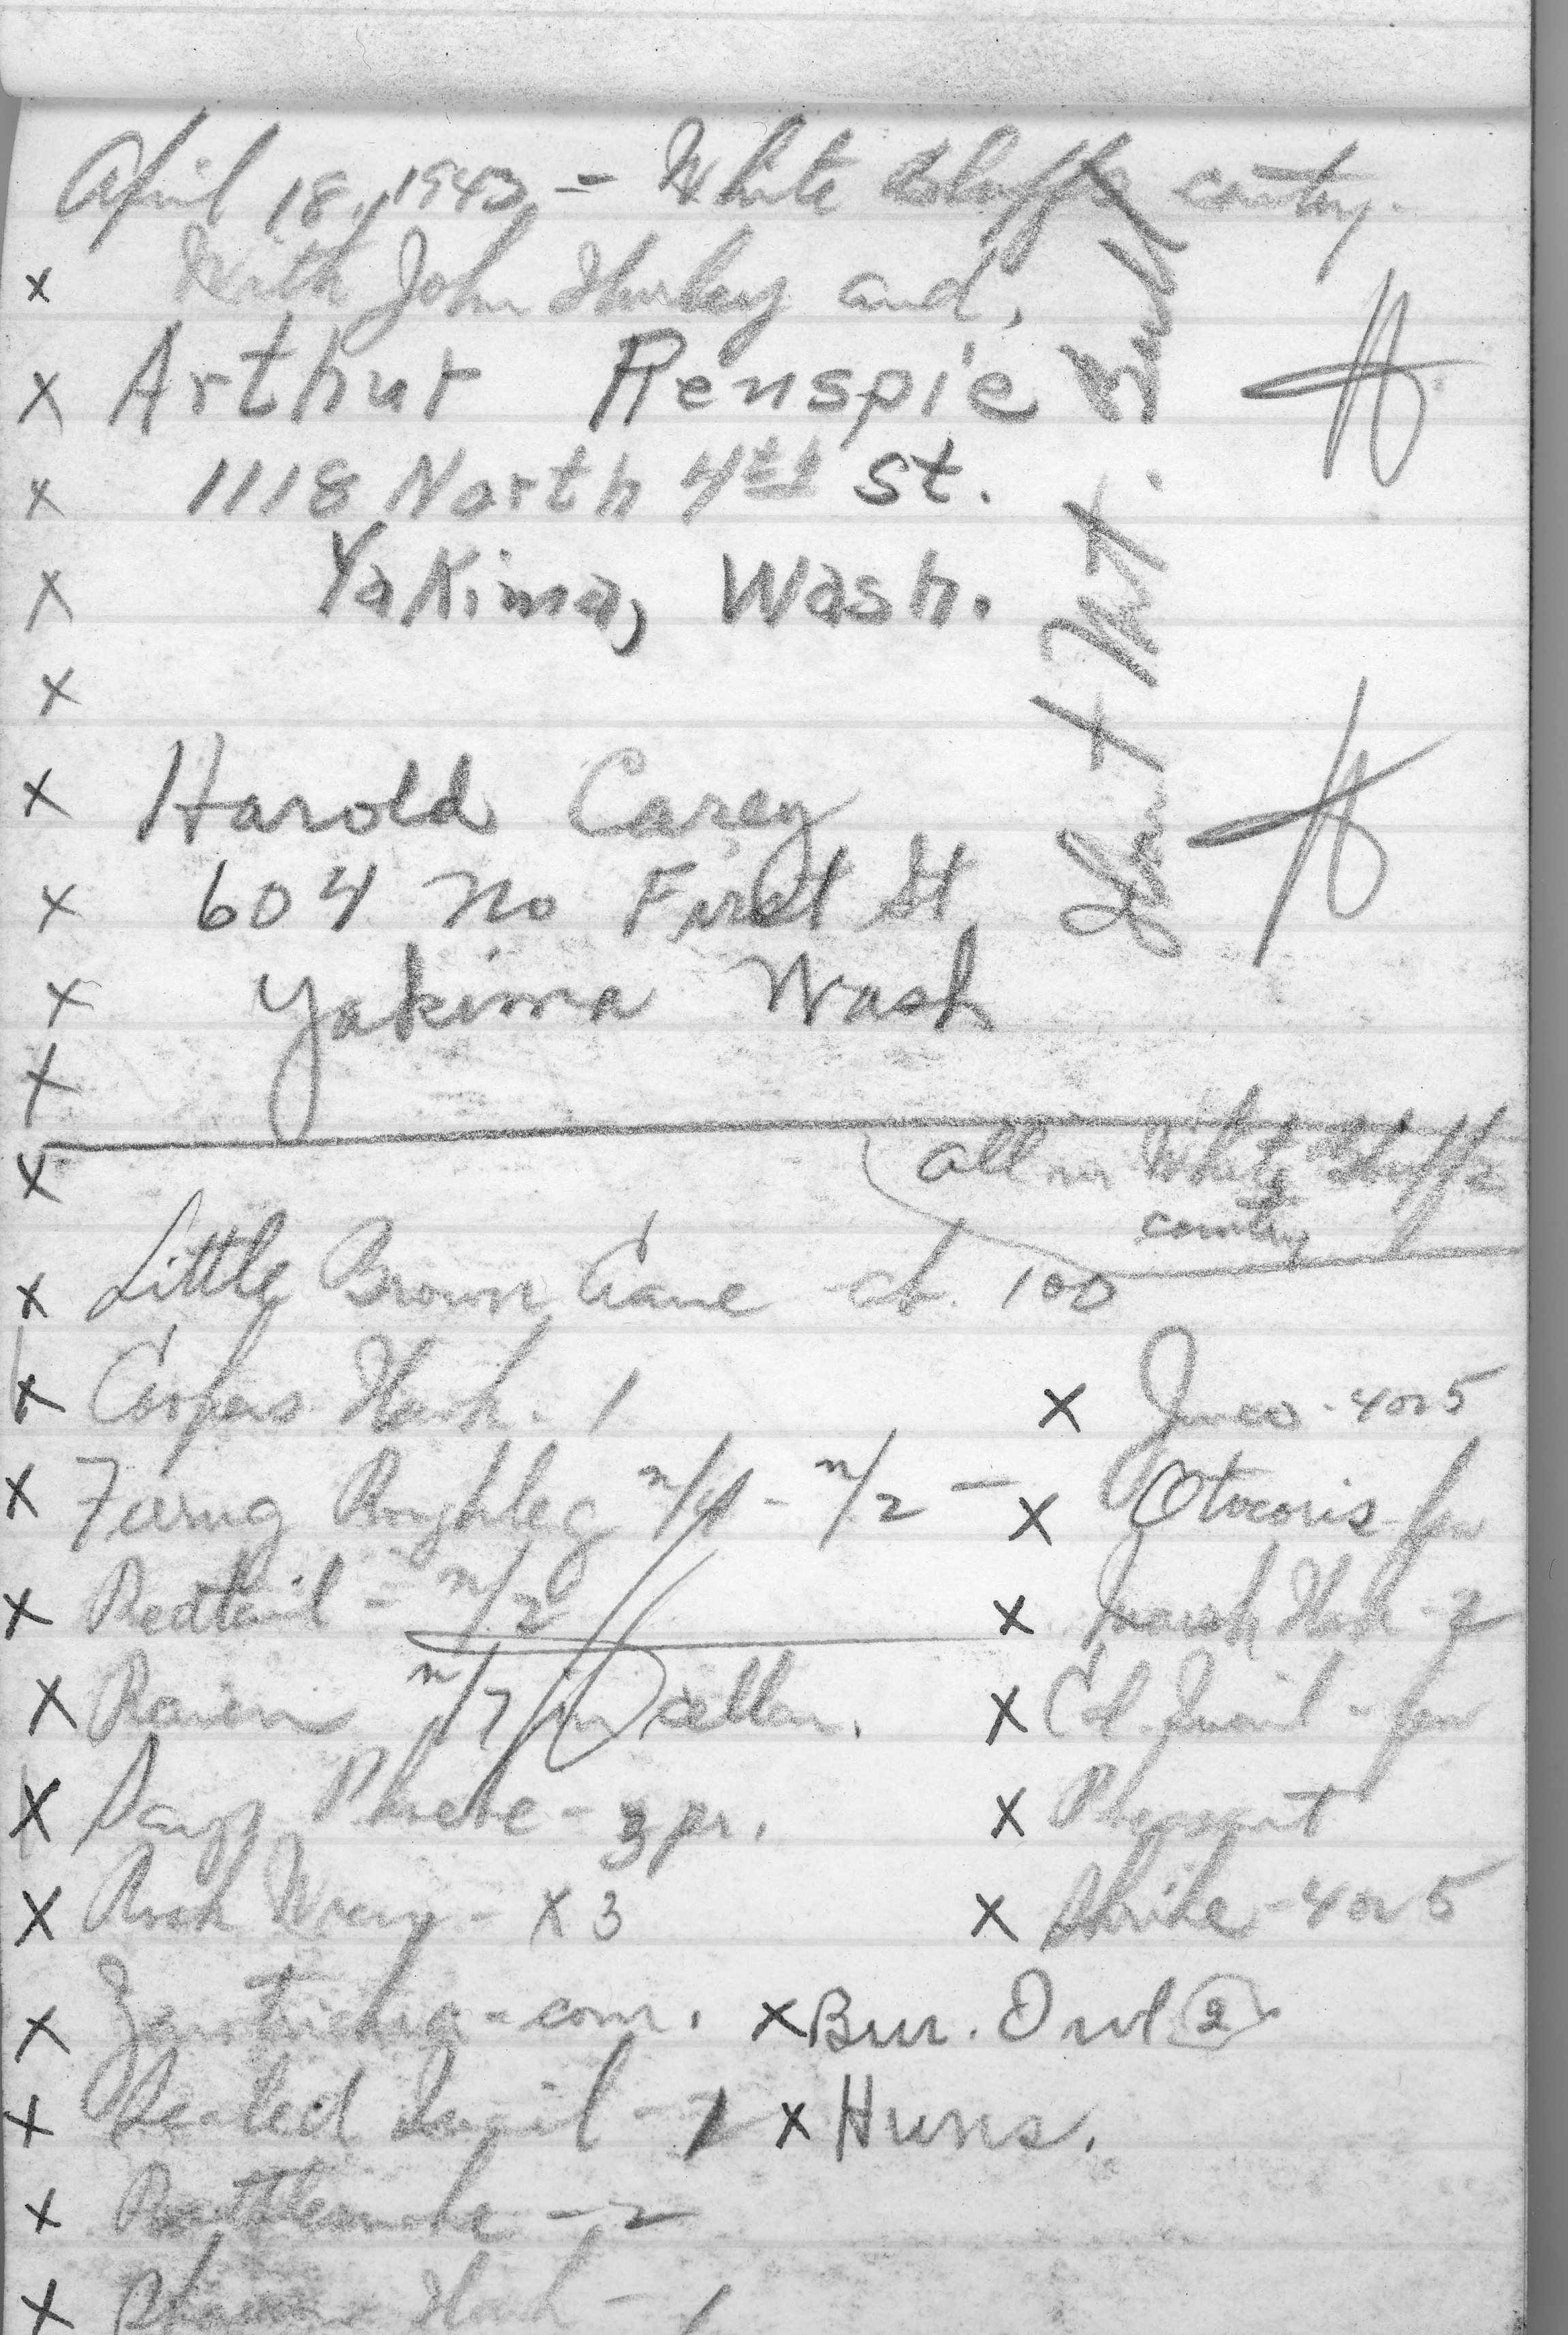 April 18, 1943 - White Bluffs country.
x With John Hurley and,
x Arthur Renspie
x 1118 North 4th St.
x Yakima, Wash.
x
x Harold Carey
x 604 No First St
x Yakima Wash
x
x
all in White Bluffs
country
x Little Brown Crane ab. 100
x Coopers Hawk - 1
x Ferrug Roughleg n/4 - n/2 -
x Redtail - n/2
x Raven n/7 in cellar.
x Says Phoebe - 3 pr.
x Rock Wren - x 3
x Zonotrichia - com.
x Scaled Quail - 1
x Rattlesnake - 2
x Hawk - 1
x Junco - 4 or 5
x Otocoris - few
x Marsh Hawk - 2
x Cal. Quail - few
x Pheasant
x Shrike - 4 or 5
x Bur. Owl 2
x Huns.